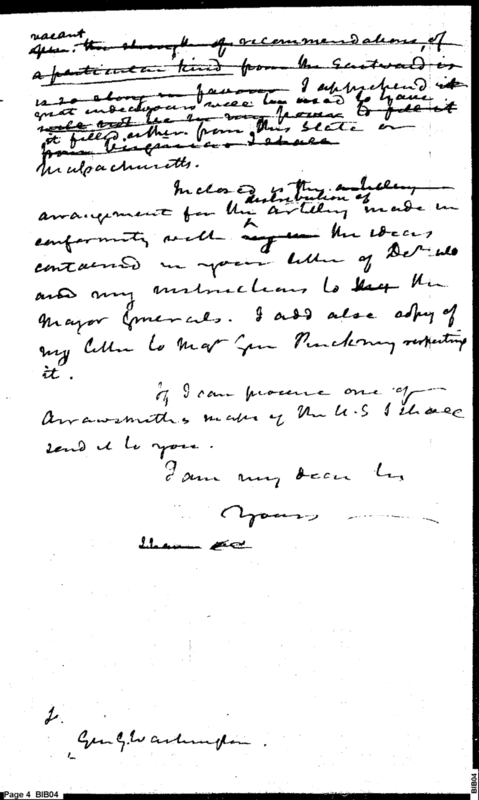 vacant
open. the strength of recommendations, of
a particular kind from the Eastward is
is so strong in favour I apprehend it
great endeavours will be used to have
will not be in my power to fill it
it filled either from this State or
from Virginia I shall
Massachusetts.
Inclosed is the artillery
distribution of
arrangement for the artillery made in
conformity with the ideas
contained in your letter of
and my instructions to the
Major Generals. I add also copy of
my letter to Majr Gen Pinckney respecting
it.
If I can procure one of
Arrawsmiths maps of the U.S I shall
send it to you.
I am my dear Sir
Yours
&c
Gen G. Washington.
Page 4 BIB04
BIB04